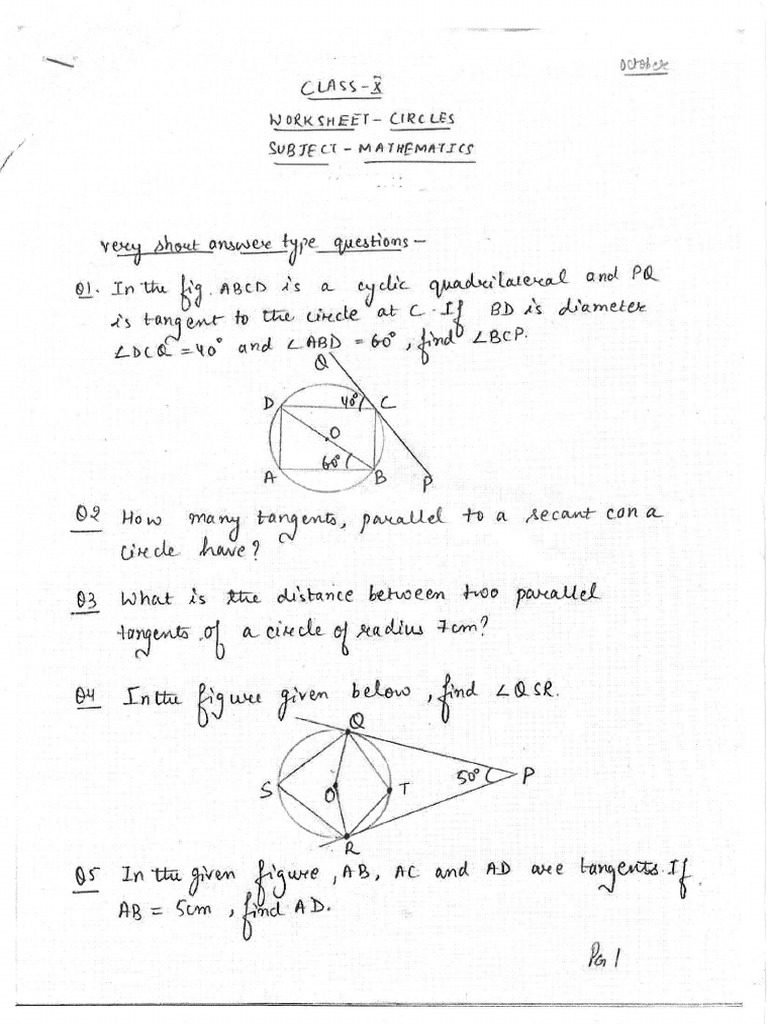 October
CLASS-X
WORKSHEET- CIRCLES
SUBJECT - MATHEMATICS
Very short answer type questions-
Q1. In the fig. ABCD is a cyclic quadrilateral and PQ
is tangent to the circle at C. If BD is diameter
∠DCQ = 40° and ∠ABD = 60°, find ∠BCP.
Q
D 40° C
O
60°
A B P
Q2 How many tangents, parallel to a secant can a
circle have?
Q3 What is the distance between two parallel
tangents of a circle of radius 7cm?
Q4 In the figure given below, find ∠QSR.
Q
S O T 50° P
R
Q5 In the given figure, AB, AC and AD are tangents. If
AB = 5cm, find AD.
PG 1